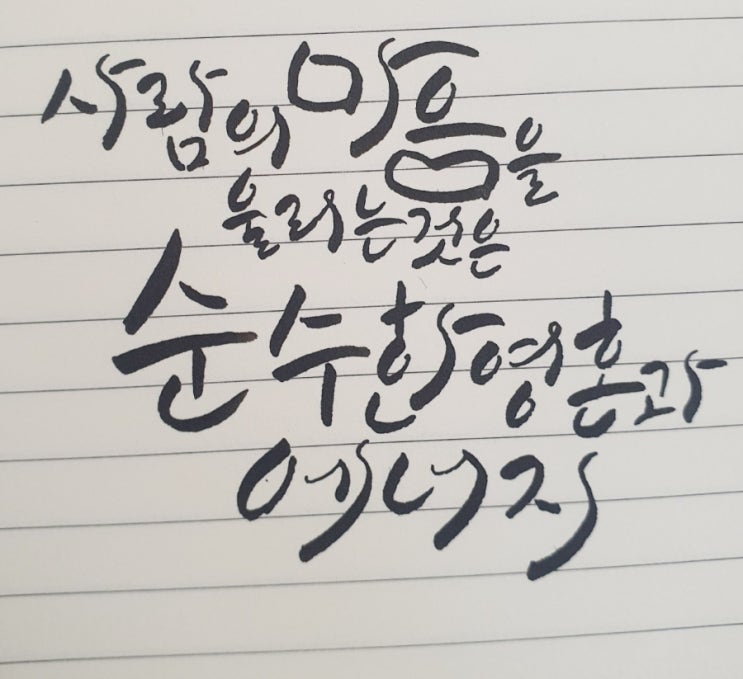 사람의 마음을
울리는것은
순수한 영혼과
에너지